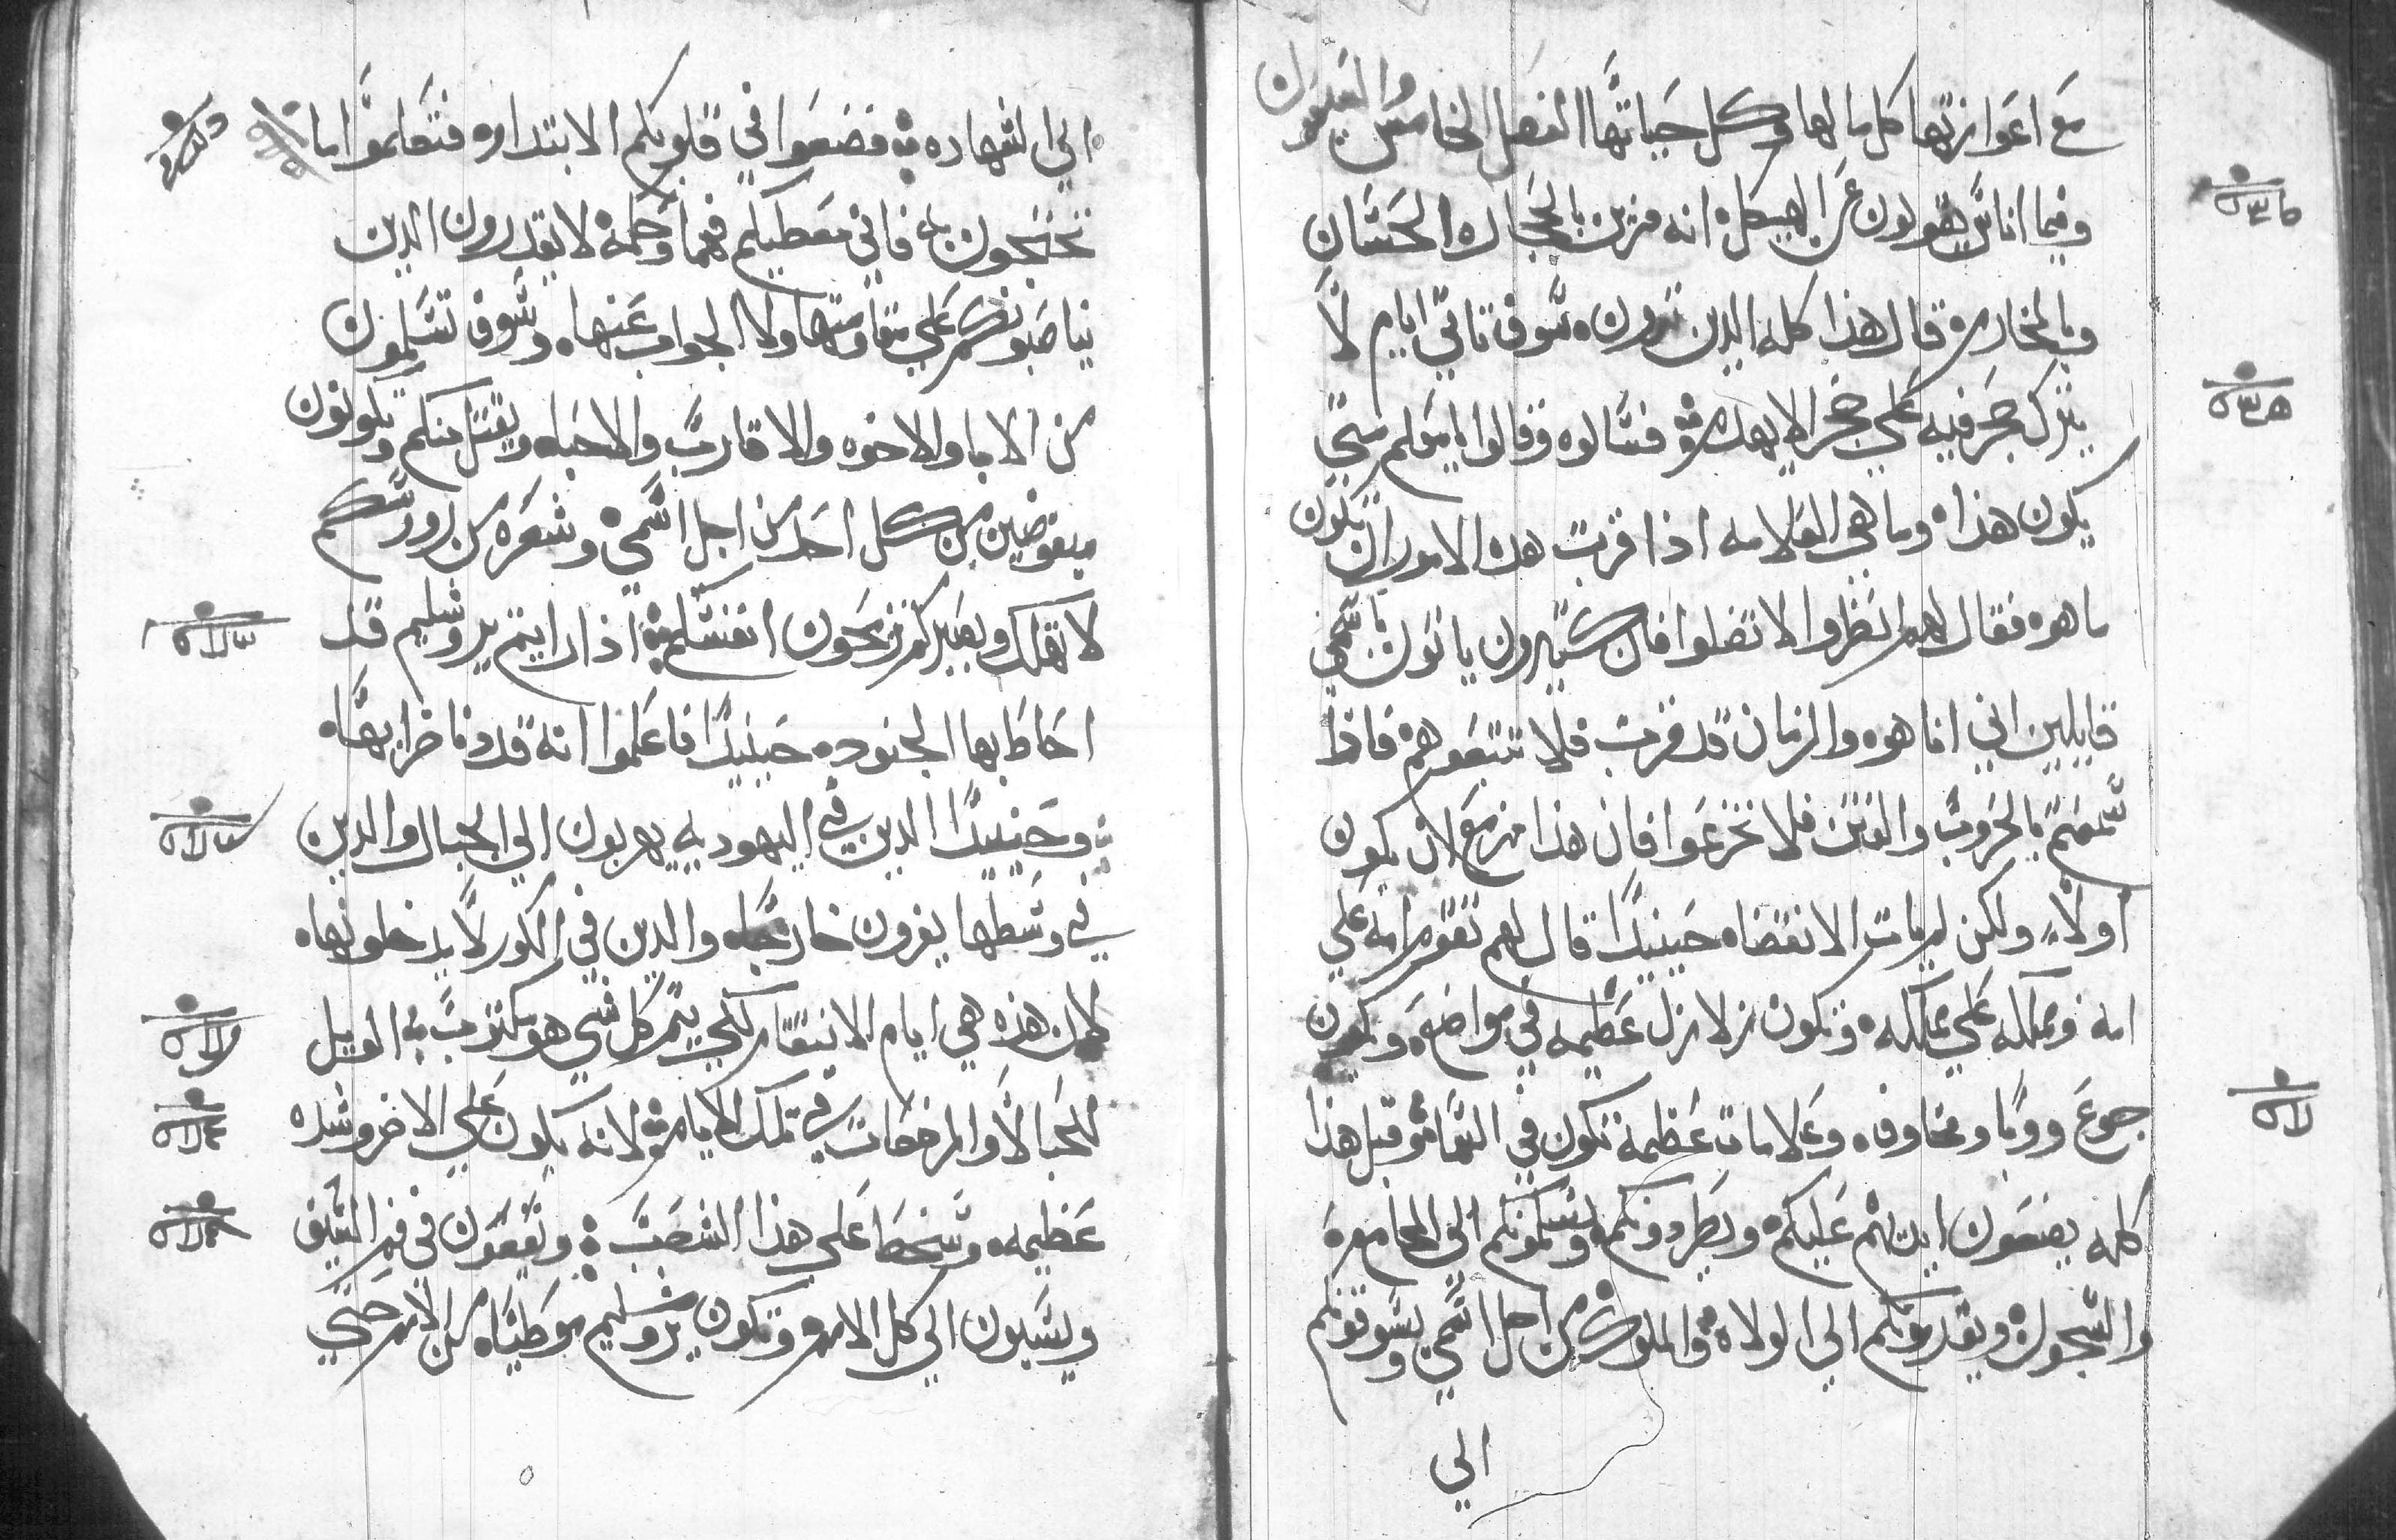 مع اعوازتها كل ما لها وكل حياتها الفصل الخامس والسبعون
وفيما اناس يقولون عن الهيكل انه مزين بالحجاره الحسان
وبالمخاره قال هذا كله الدين ترون سوف تاتي ايام لا
يترك حجر فيه علي حجر الا يهدم فسالوه وقالوا يا معلم متي
يكون هذا وما هي العلامه اذا قربت هده الامور ان تكون
ما هو فقال لهم انظروا لا تضلوا فان كتيرون ياتون باسمي
قايلين اني انا هو والزمان قد قرب فلا تتبعوهم فاذا
سمعتم بالحروب والفتن فلا تجزعوا فان هذا مزمع لان يكون
اولاً ولكن لم يات الانقضاه حينيدًا قال لهم تقوم امه علي
امه ومملكه علي مملكه وتكون زلازل عظيمه في مواضع ويكون
جوع ووبا ومخاوف وعلامات عظيمة تكون في السما وقبل هذا
كله يضعون ايديهم عليكم ويطردونكم ويسلمونكم الي المجامع
والسجون ويقدمونكم الي الولاه والملوك من اجل اسمي ويسوقونكم
الي
الي الشهاده فضعوا في قلوبكم الا بتداره فتعلموا ما
تحتجون به فاني معطيكم فما وحكمة لا يقدرون الدين
يناصبونكم علي مقاومتها ولا الجواب عنها وسوف تسلمون
من الابا والاخوه والاقارب والاحبا ويقتل منكم وتكونون
مبغوضين من كل احد من اجل اسمي وشعره من روسكم
لا تهلك وبصبركم تربحون انفسكم اذا رايتم يروشليم قد
احاط بها الجنود حينيدًا فاعلموا انه قد دنا خرابها
وحينيدًا الدين في اليهوديه يهربون الي الجبال والدين
في وسطها يفرون خارجًا والدين في الكور لا يدخلونها
لان هذه هي ايام الانتقام لكي يتم كل شي هو مكتوب الويل
للحبالا والمرضعات في تلك الايام لانه يكون علي الارض شده
عظيمه وسخط علي هذا الشعب ويقعون في فم السيف
ويسبون الي كل الامم وتكون يروشليم موطيا من الامم حتي